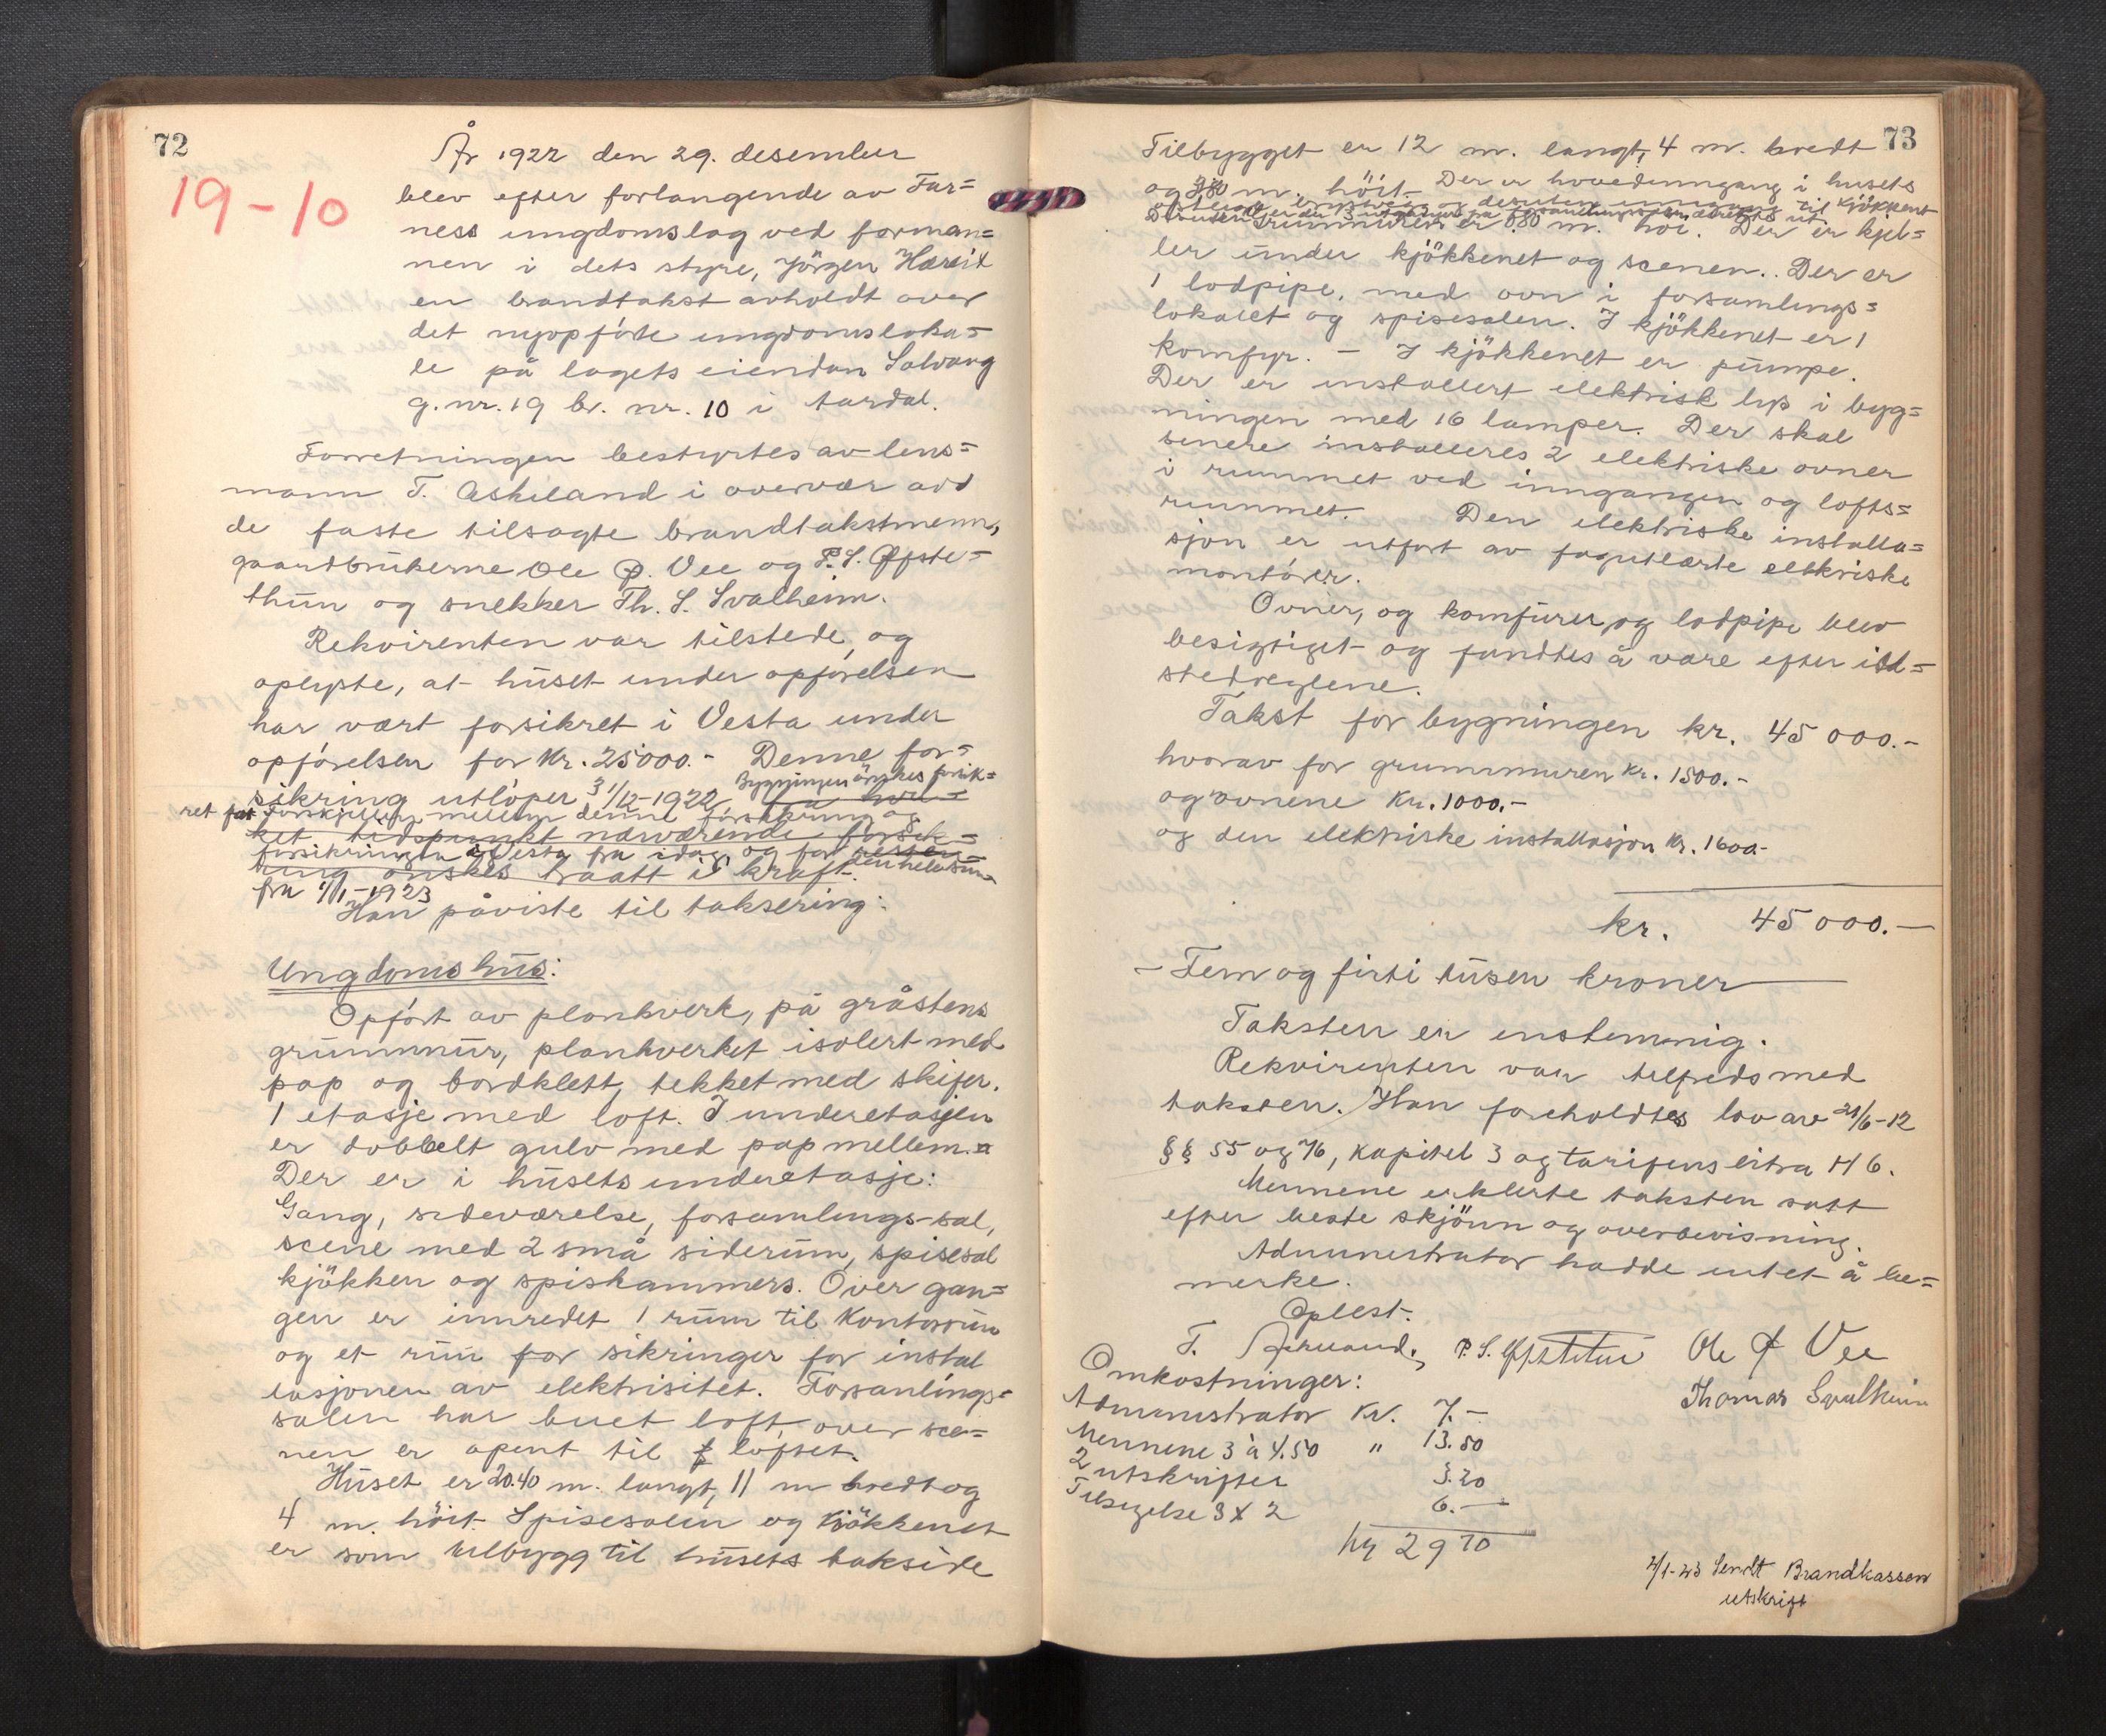 72
19-10
År 1922 den 29. desember
blev efter forlangende av Far=
ness ungdomslag ved forman=
nen i dets styre, Jörgen Hæreid
en brandtakst avholdt over
det nyopförte ungdomsloka=
le på lagets eiendom Solvang
g.nr. 19 br. nr. 10 i Aardal.
Forretningen bestyrtes av lens=
mann T. Askeland i overvær av
de faste tilsagte brandtakstmenn,
gaardbrukerne Ole Ø. Vee og P. S. Øfste=
thun og snekker Th. S. Svalheim.
Rekvirenten var tilstede, og
oplyste, at huset under opförelsen
har vært forsikret i Vesta under
opförelsen for Kr. 25000.- Denne for=
sikring utlöper 31/12-1922, fra hvil=
Bygningen önskes forsik=
ret for forskjellen mellem denne forsikring og
ket tidspunkt nærværende forsik=
forsikringen i Vesta fra idag og for
den hele sum
ring önskes traatt i kraft.
fra 1/1-1923
Han påviste til taksering:
Ungdomshus:
Opfört av plankverk, på gråstens
grunnmur, plankverket isolert med
pap og bordklett, tekket med skifer.
1 etasje med loft. I underetasjen
er dobbelt gulv med pap mellem.
Der er i husets underetasje:
Gang, sideværelse, forsamlings-sal,
scene med 2 små siderum, spisesal
kjökken og spiskammers. Over gan=
gen er innredet 1 rum til Kontorrum
og et rum for sikringer for instal
lasjonen av elektrisitet. Forsamlings=
salen har buet loft, over sce=
nen er åpent til loftet.
Huset er 20.40 m. langt, 11 m bredt og
4 m. höit. Spisesalen og Kjökkenet
er som tilbygg til husets bakside
73
Tilbygget er 12 m. langt, 4 m. bredt
og 3,80 m. höit. Der er hovedinngang i husets
og desuten inngang til Kjökkenet
Desuten er der 3 utganger fra forsamlingssalen direkte ut
Grunnmuren er 0.80 m. höi. Der er kjel=
ler under kjökkenet og scenen. Der er
1 lodpipe, med ovn i forsamlings=
lokalet og spisesalen. I kjökkenet er 1
komfyr. - I kjökkenet er pumpe.
Der er installert elektrisk lys i byg=
ningen med 16 lamper. Der skal
senere installeres 2 elektriske ovner
i rummet ved inngangen og lofts=
rummet. Den elektriske installa=
sjon er utfört av fagutlærte elektriske
montörer.
Ovner, og komfurer, og lodpipe blev
besigtiget og fandtes å være efter ild=
stedreglene.
Takst for bygningen kr. 45 000.-
hvorav for grunnmuren Kr. 1500.-
og ovnene Kr. 1000.-
og den elektriske installasjon Kr. 1600.-
kr. 45 000.-
- Fem og firti tusen kroner
Taksten er enstemmig.
Rekvirenten var tilfreds med
taksten. Han foreholdtes lov av 21/6-12
§§ 55 og 76, Kapitel 3 og tarifens litra H 6.
Mennene erklærte taksten satt
efter beste skjönn og overbevisning.
Administrator hadde intet å be=
merke.
Oplest.
T. Askeland. P. S. Øfstetun Ole Ø Vee
Thomas Svalheim
Omkostninger:
Administrator Kr. 7.-
Mennene 3 à 4.50 " 13.50
2 utskrifter 3.20
Tilsigelse 3 x 2 6.-
Kr 29 70
2/1-23 Sendt Brandkassen
utskrift